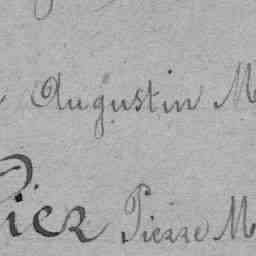 Augustin M
Pier Pierre M